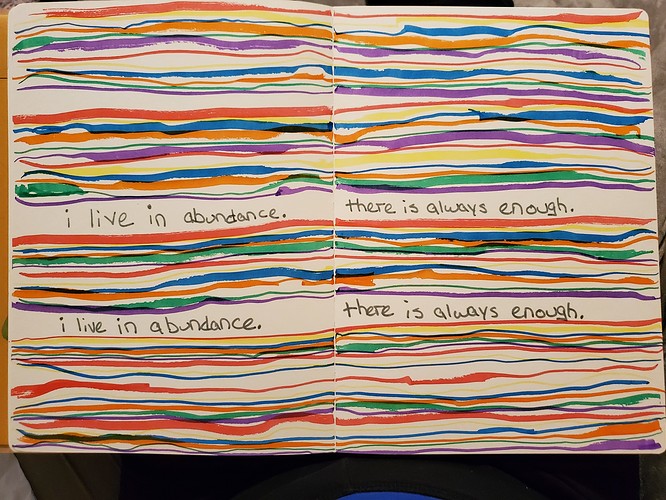 i live in abundance. there is always enough.
i live in abundance. there is always enough.